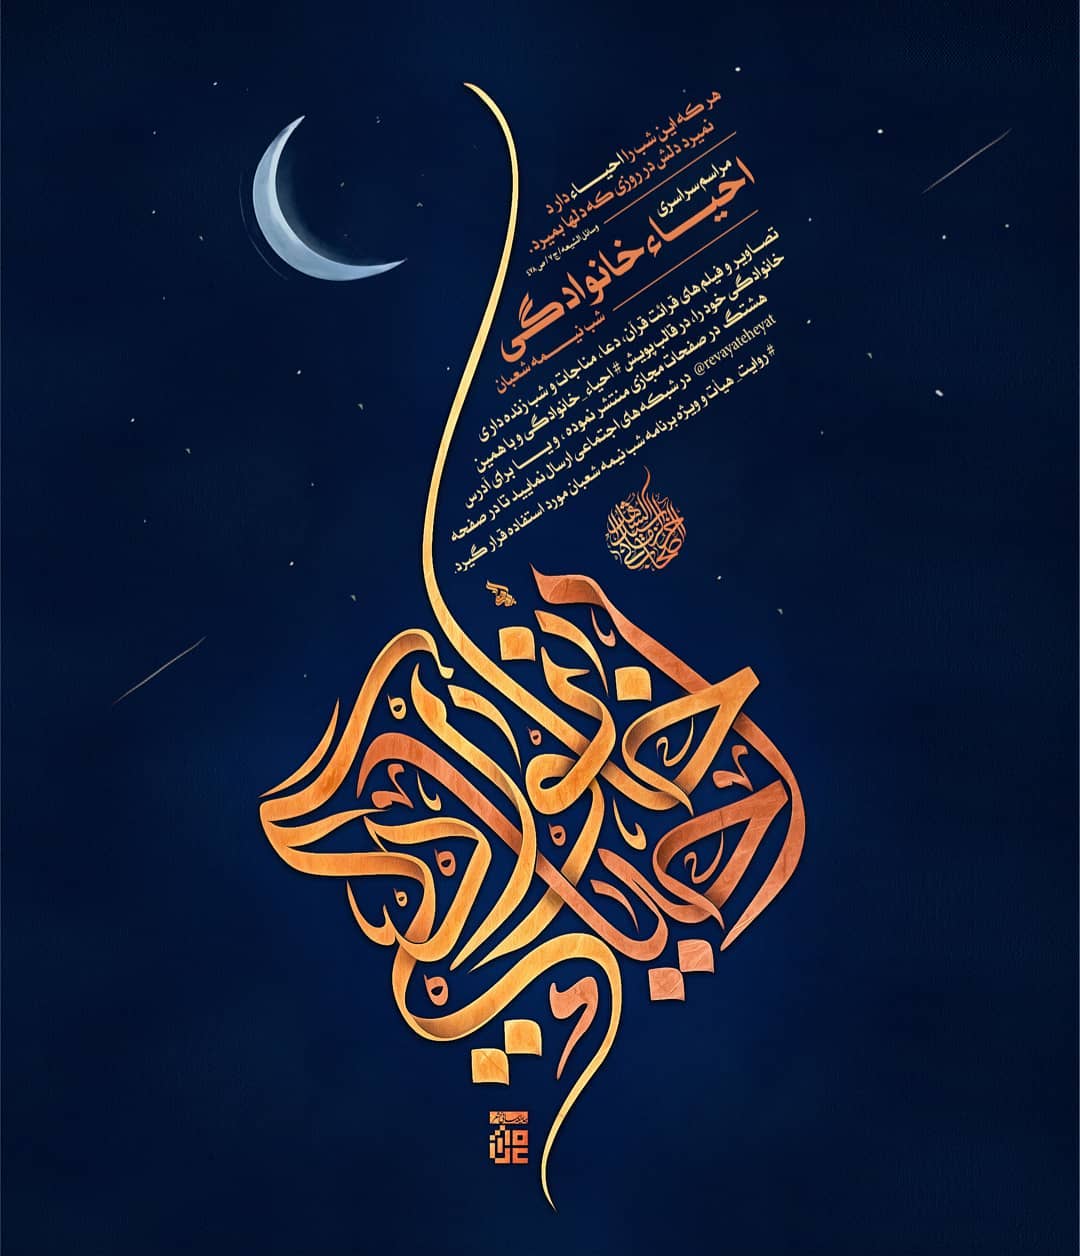 هر که این شب را احیـاء دارد
نمیرد دلش در روزی که دلها بمیرد.
وسائل الشیعه/ ج ۷/ ص ۴۷۸
مراسم سراسری
احیـاء خانوادگی
شب نیـمه شعبان
تصـاویر و فیلم های قرائت قرآن، دعـا، مناجات و شب زنده داری
خانوادگی خود را، در قالب پویش #احیاء_خانوادگی و با همین
هشتگ در صفحات مجازی منتشر نموده، و یـا برای آدرس
@revayateheyat در شبکه های اجتماعی ارسال نمایید تا در صفحه
#روایت_هیات و ویژه برنامه شب نیمه شعبان مورد استفاده قرار گیرد.
احیاء خانوادگی